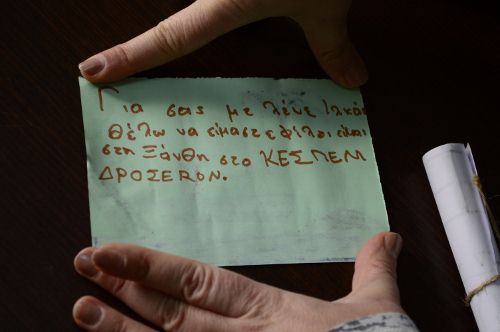 Για σας με λένε Ιλκάι
θέλω να είμαστε φίλοι είμαι
στη Ξάνθη στο ΚΕΣΠΕΜ
ΔΡΟΣΕRΟΝ.